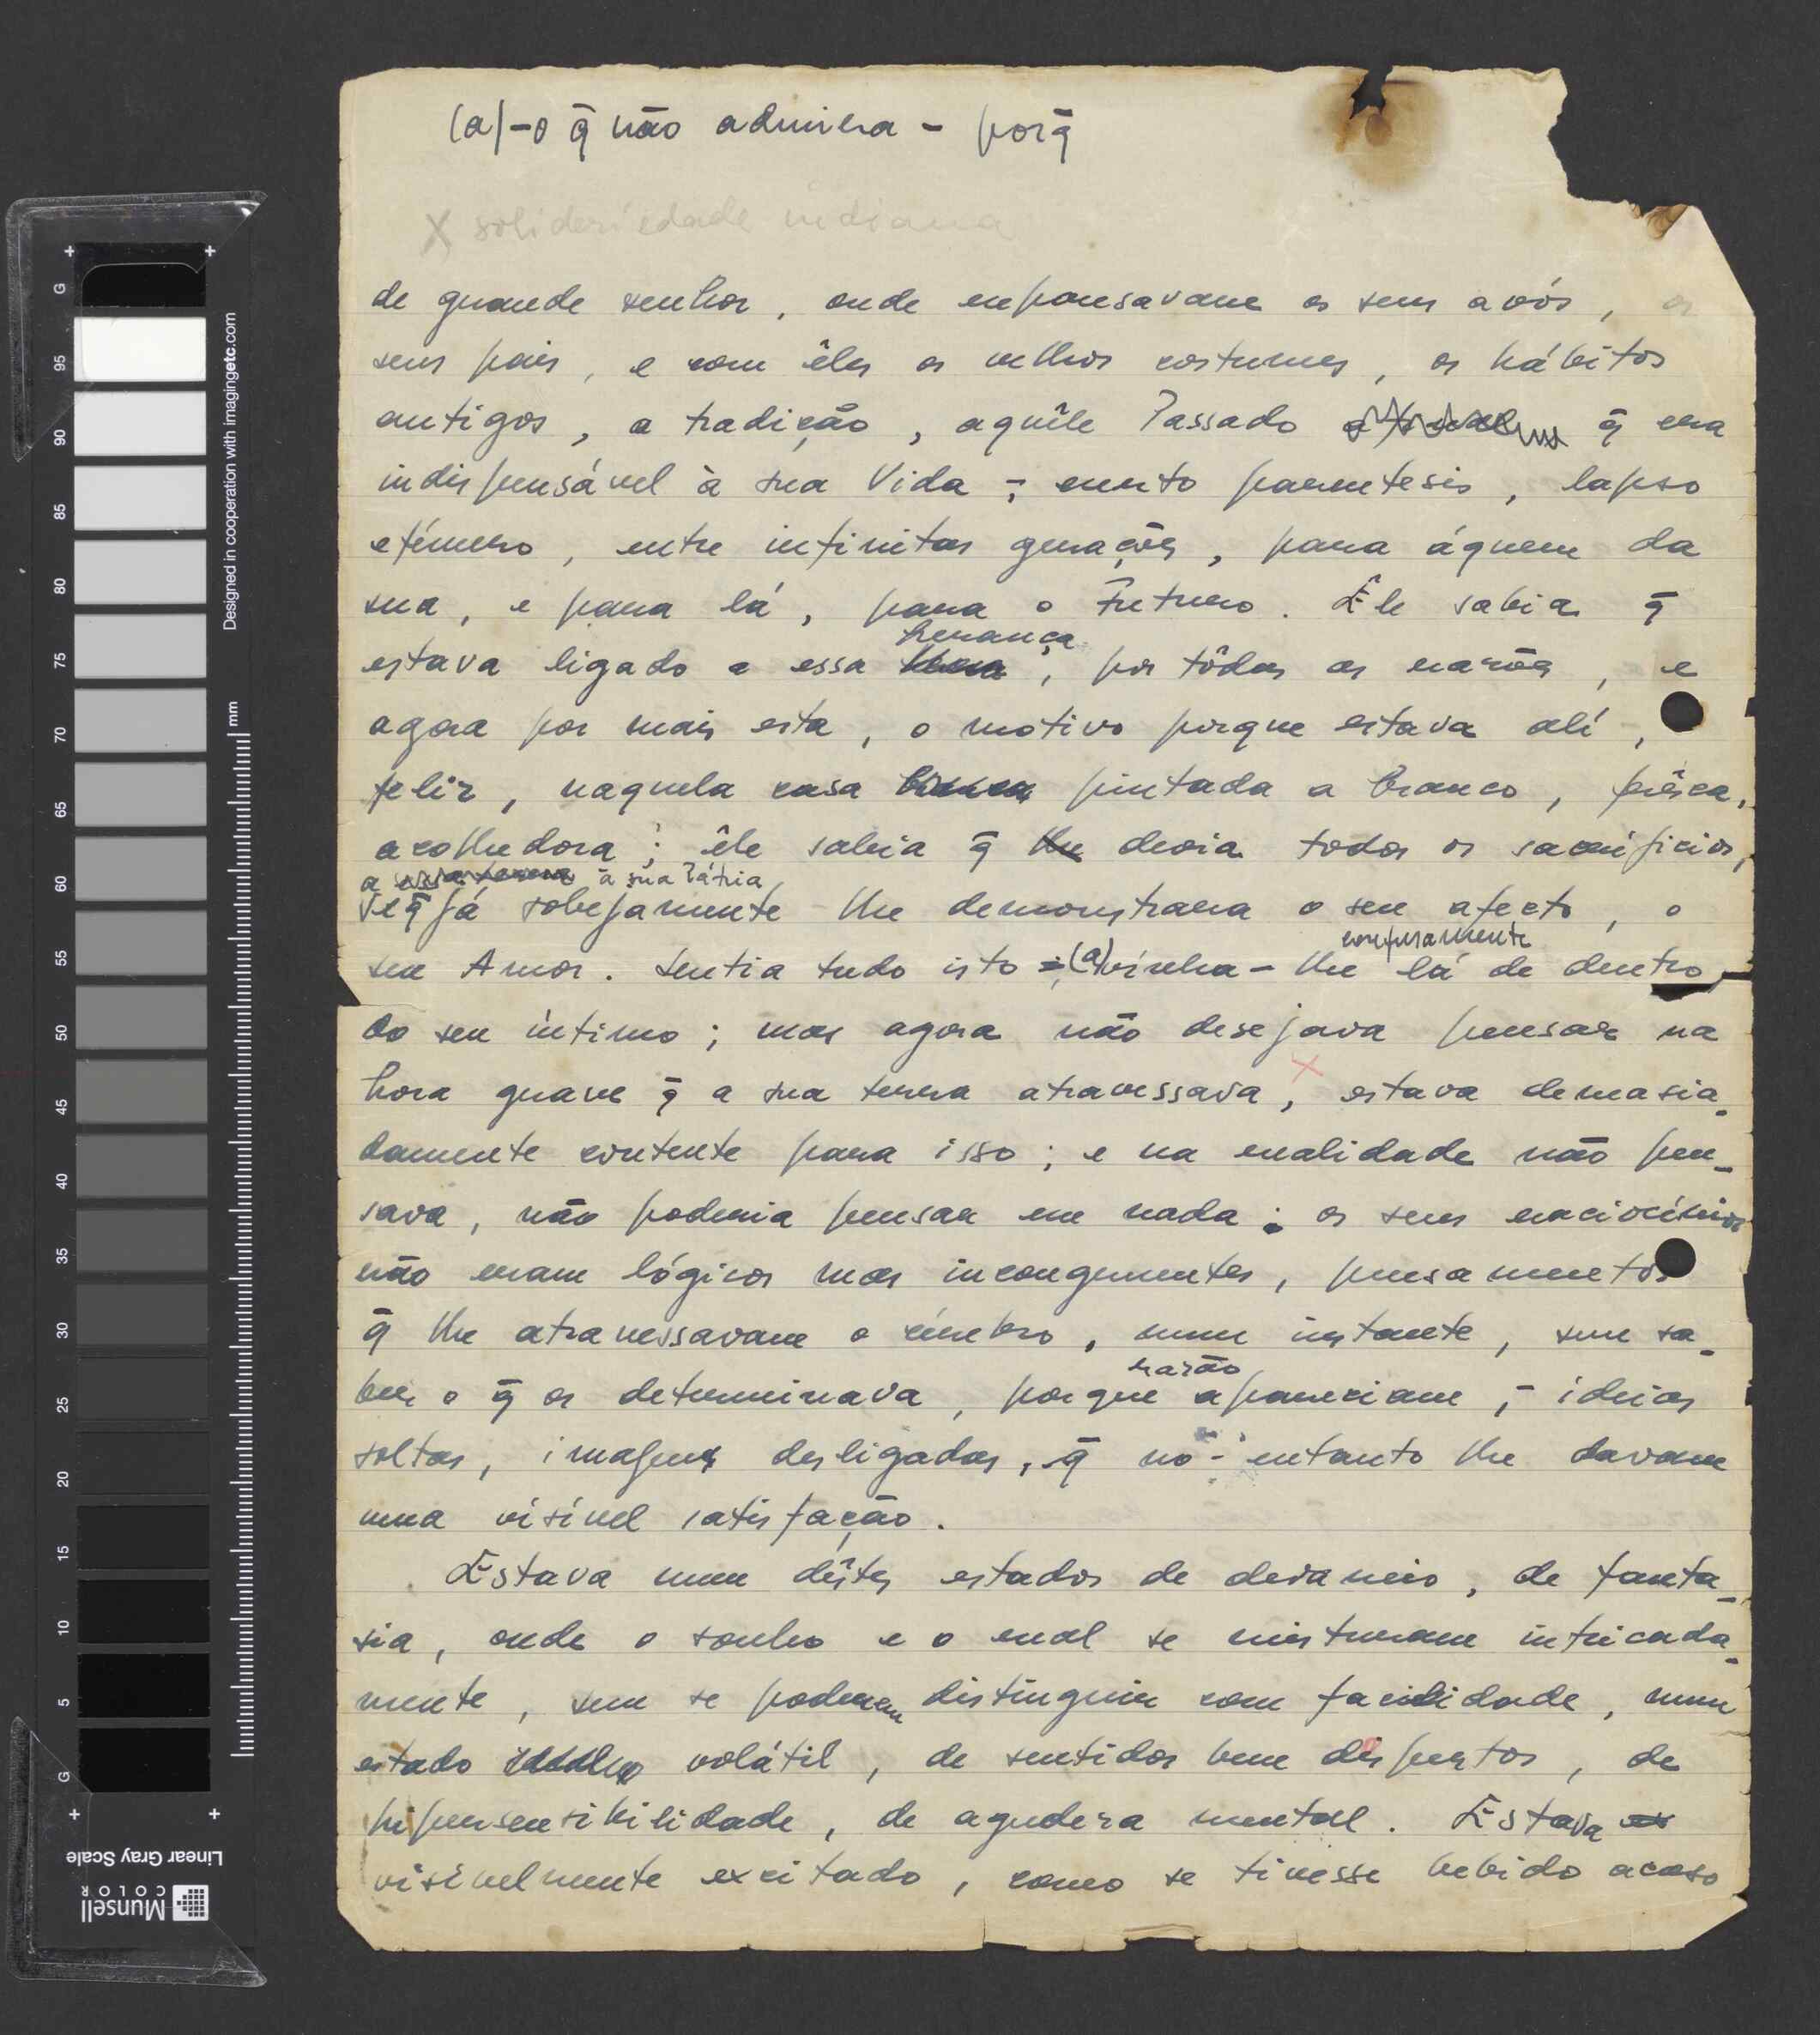 (a) - o q̄ não admira - porq̄
X solideriedade indiana
de grande senhor, onde repousavam os seus avós, os
seus pais, e com êles os velhos costumes, os hábitos
antigos, a tradição, aquêle Passado q̄ era
indispensável à sua Vida - ; curto parentesis, lapso
efémero, entre infinitas gerações, para áquem da
sua, e para lá, para o Futuro. Êle sabia q̄
herança
estava ligado a essa , por tôdas as razões, e
agora por mais esta, o motivo porque estava alí,
feliz, naquela casa branca pintada a branco, frêsca,
acolhedora ; êle sabia q̄ lhe devia todos os sacrifícios,
a essa terra à sua Pátria
q̄ já sobejamente lhe demonstrara o seu afecto, o
confusamente
seu Amor. Sentia tudo isto ; (a) vinha-lhe lá de dentro
do seu íntimo ; mas agora não desejava pensar na
X
hora grave q̄ a sua terra atravessava, estava demasia-
damente contente para isso ; e na realidade não pen-
sava, não poderia pensar em nada : os seus raciocínios
não eram lógicos mas incongruentes, pensamentos
q̄ lhe atravessavam o cérebro, num instante, sem sa-
razão
ber o q̄ os determinava, porque apareciam, - ideias
soltas, imagens desligadas, q̄ no-entanto lhe davam
uma visível satisfação.
Estava num dêstes estados de devaneio, de fanta-
sia, onde o sonho e o real se misturam intricada-
mente, sem se poderem distinguir com facilidade, num
estado volátil, de sentidos bem despertos, de
hipersensibilidade, de agudeza mental. Estava
visivelmente excitado, como se tivesse bebido acaso
+ +
G
95
90
85
80
75
70
65
60
55
50
45
40
35
30
25
20
15
10
5
G
+ +
mm
Designed in cooperation with imagingetc.com
Linear Gray Scale
Munsell
COLOR